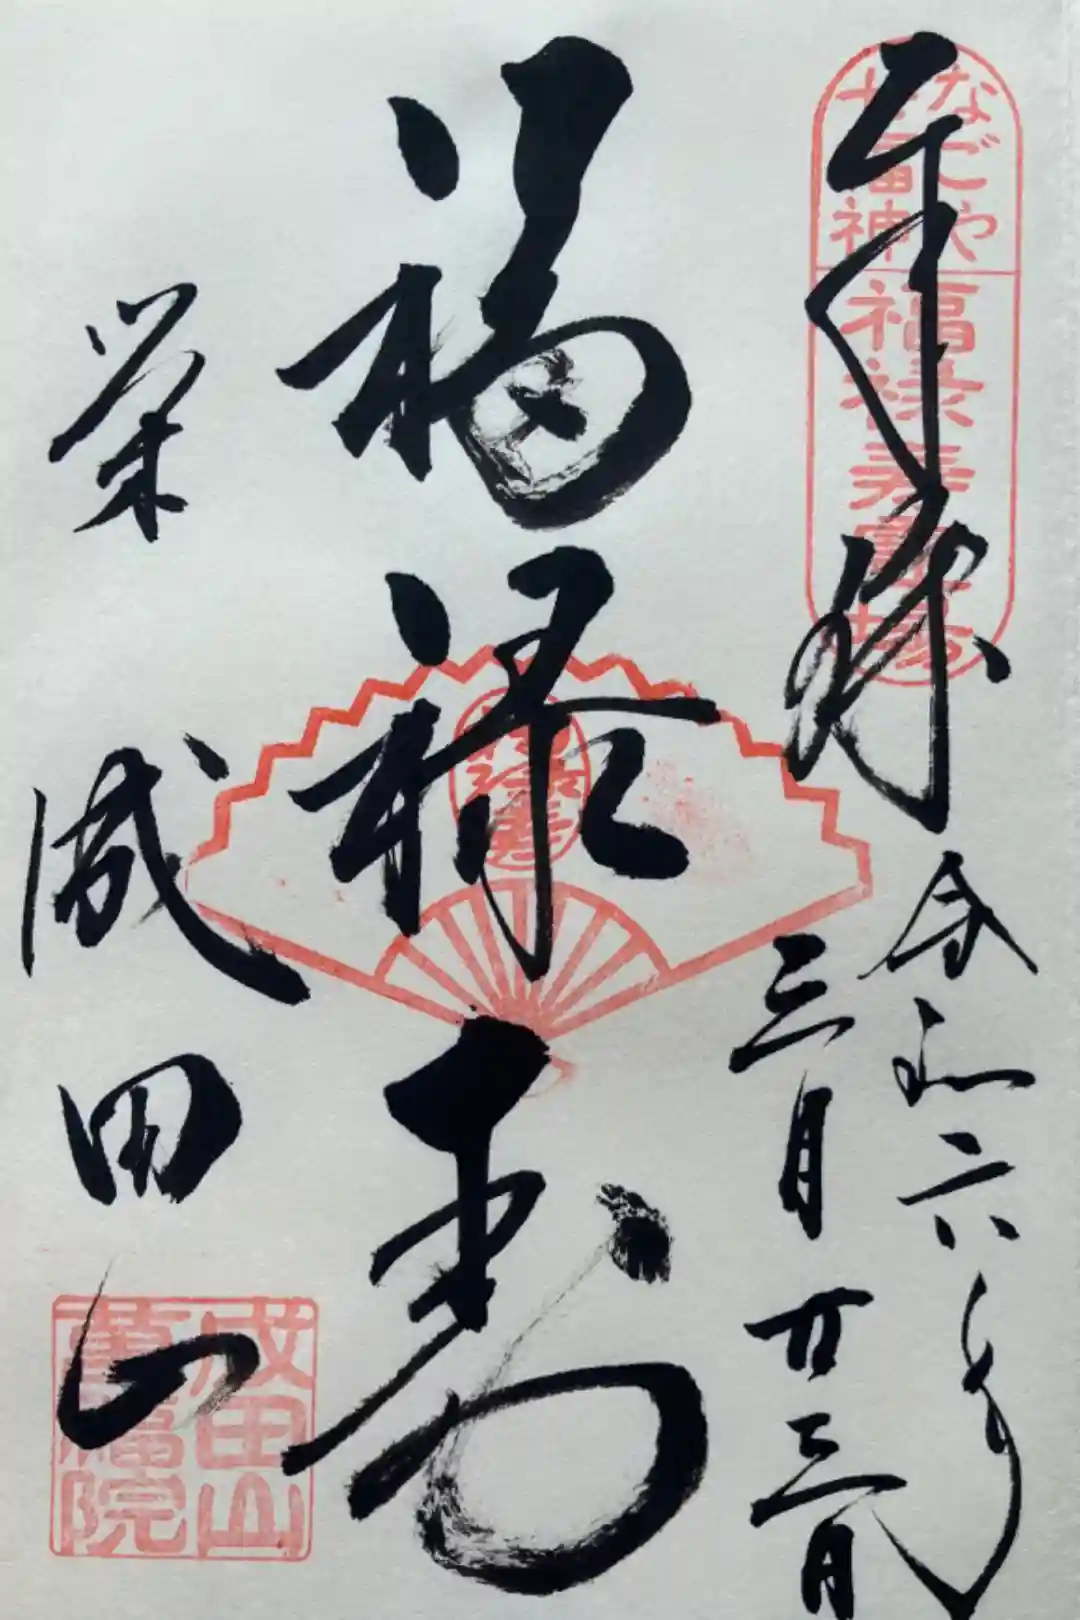 奉拝
令和六年
三月廿三日
福禄寿
栄 成田山
なごや
七福神
福禄寿霊場
福禄寿
成田山
萬福院